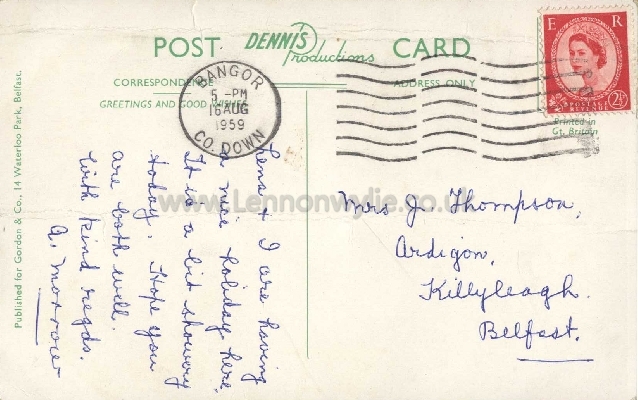 POST DENNIS Productions CARD
CORRESPONDENCE ADDRESS ONLY
GREETINGS AND GOOD WISHES
BANGOR
5 - PM
16 AUG
1959
CO. DOWN
E R
POSTAGE
REVENUE
2½
Printed in
Gt. Britain
Published for Gordon & Co., 14 Waterloo Park, Belfast.
www.Lennonwylie.co.uk
Lena & I are having
a nice holiday here.
It is a bit showery
today. Hope you
are both well.
With kind regds.
A. Morrow
Mrs J. Thompson,
Ardigon,
Killyleagh.
Belfast.